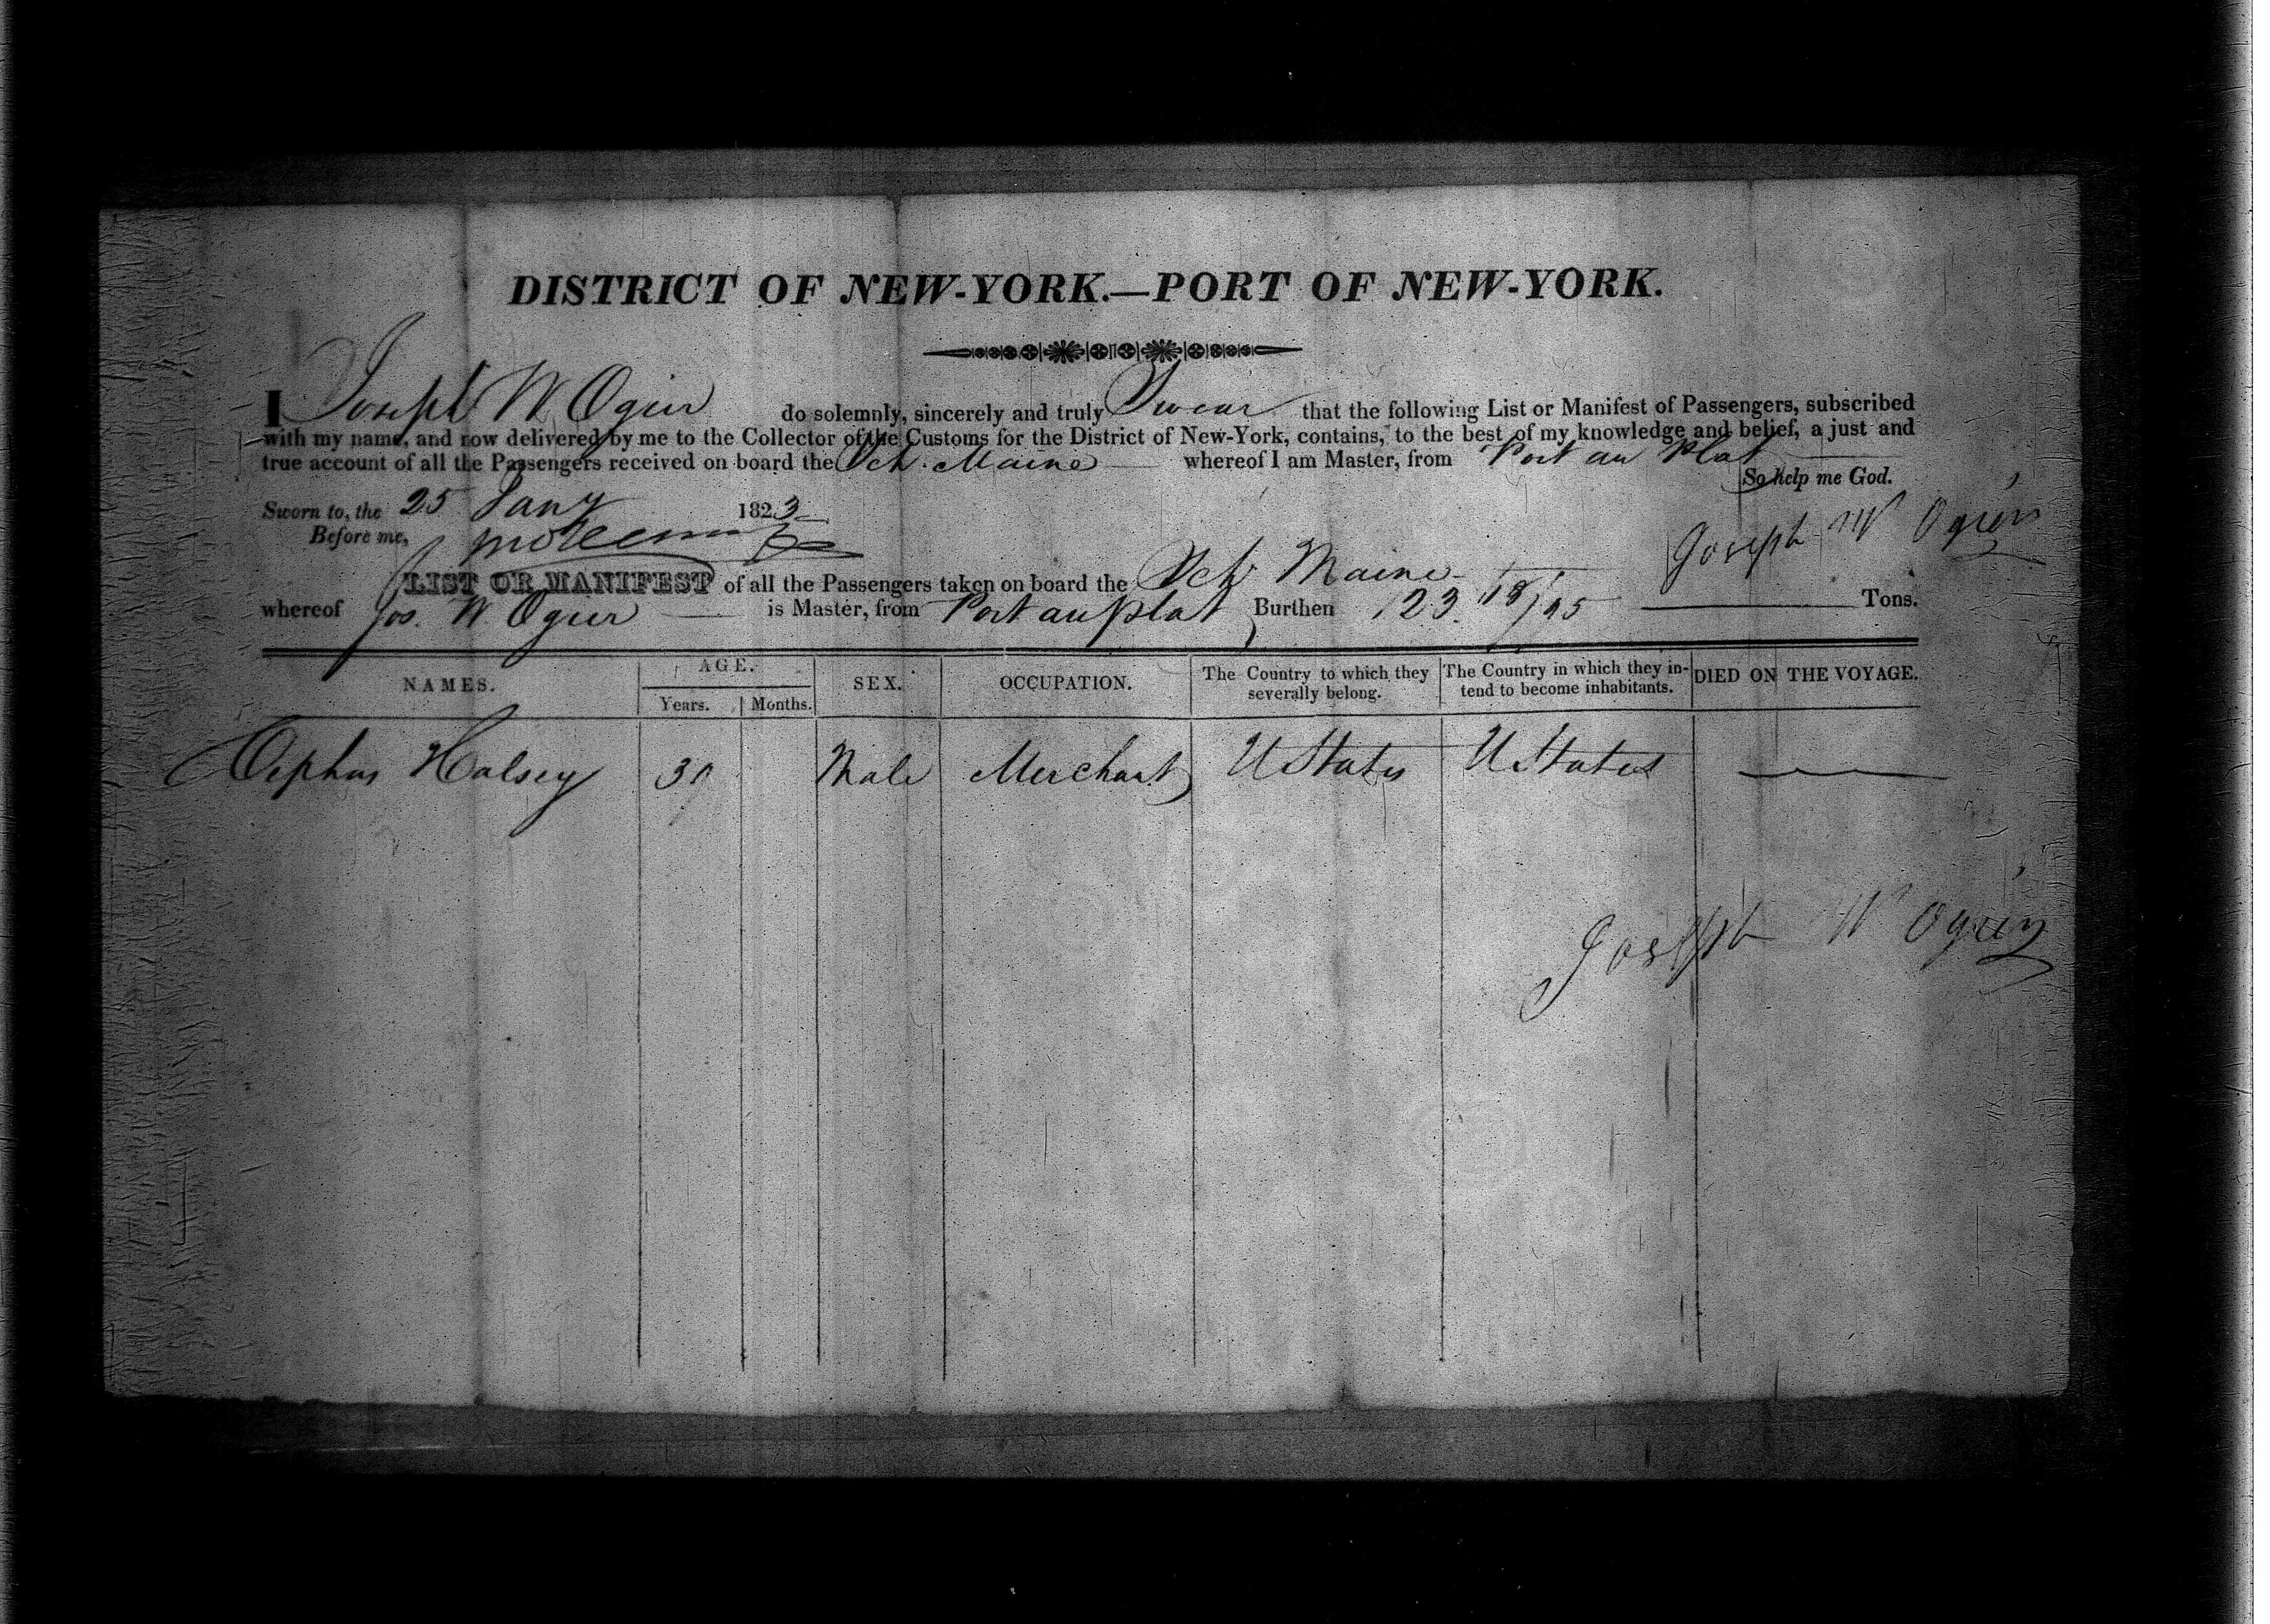 DISTRICT OF NEW-YORK.—PORT OF NEW-YORK.
I Joseph W Ogier do solemnly, sincerely and truly Swear that the following List or Manifest of Passengers, subscribed
with my name, and now delivered by me to the Collector of the Customs for the District of New-York, contains, to the best of my knowledge and belief, a just and
true account of all the Passengers received on board the Sch. Maine whereof I am Master, from Port au Plat
So help me God.
Sworn to, the 25 Jany 1823
Before me,
Joseph W Ogier
LIST OR MANIFEST of all the Passengers taken on board the Sch Maine
whereof Jos. W Ogier is Master, from Port au plat Burthen 123 18/95 Tons.
NAMES. AGE. SEX. OCCUPATION. The Country to which they severally belong. The Country in which they intend to become inhabitants. DIED ON THE VOYAGE.
Years. Months.
Cephas Halsey 30 Male Merchant U States U States —
Joseph W Ogier